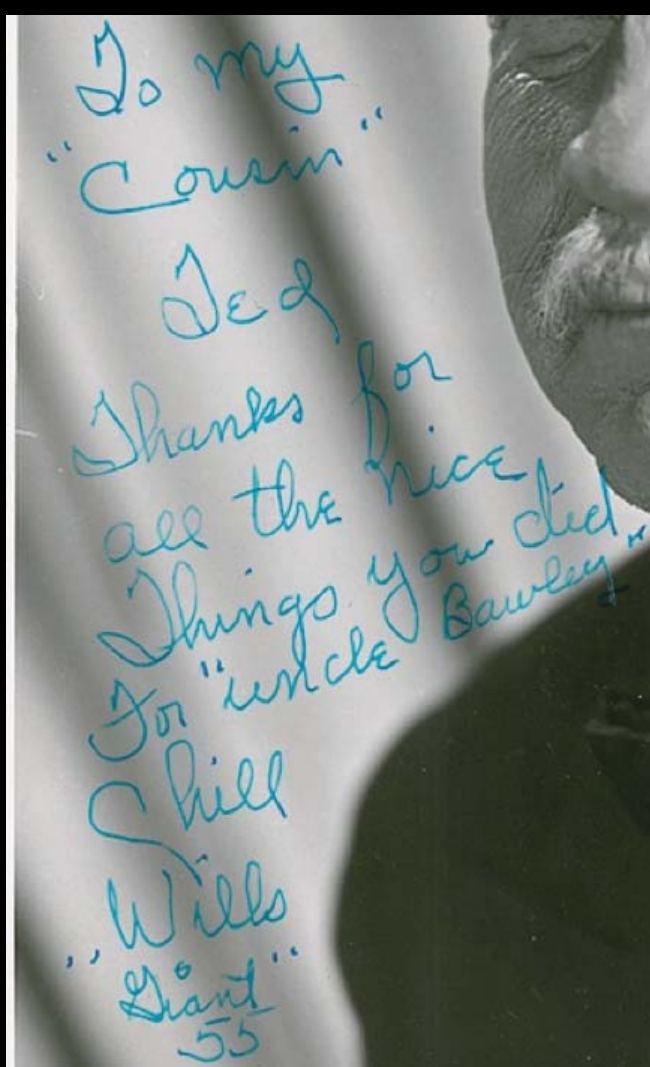 To my
"Cousin"
Ted
Thanks for
all the nice
Things you did
For "uncle Bawley"
Chill
Wills
"Giant"
55